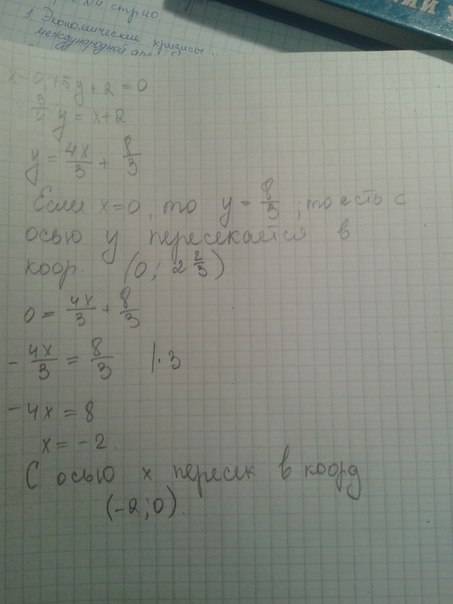 1. Экономические кризисы
международной
x - 0,75y + 2 = 0
3/4 y = x + 2
y = 4x/3 + 8/3
Если x=0, то y = 8/3, то есть с
осью y пересекается в
коор (0; 2 2/3)
0 = 4x/3 + 8/3
- 4x/3 = 8/3 |·3
-4x = 8
x = -2
С осью x пересек в коорд
(-2; 0).